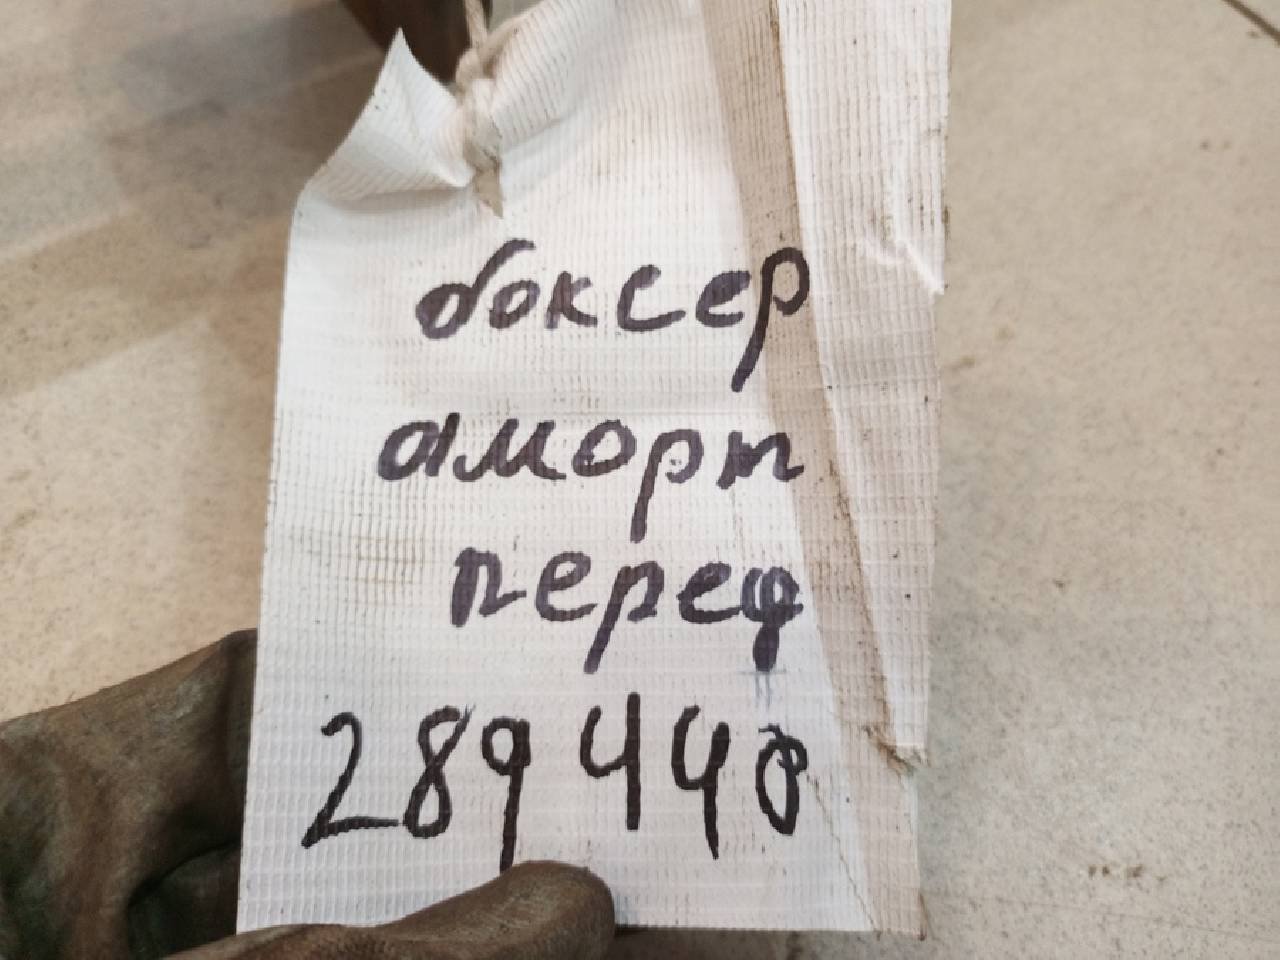 боксер
аморт
перед
289440